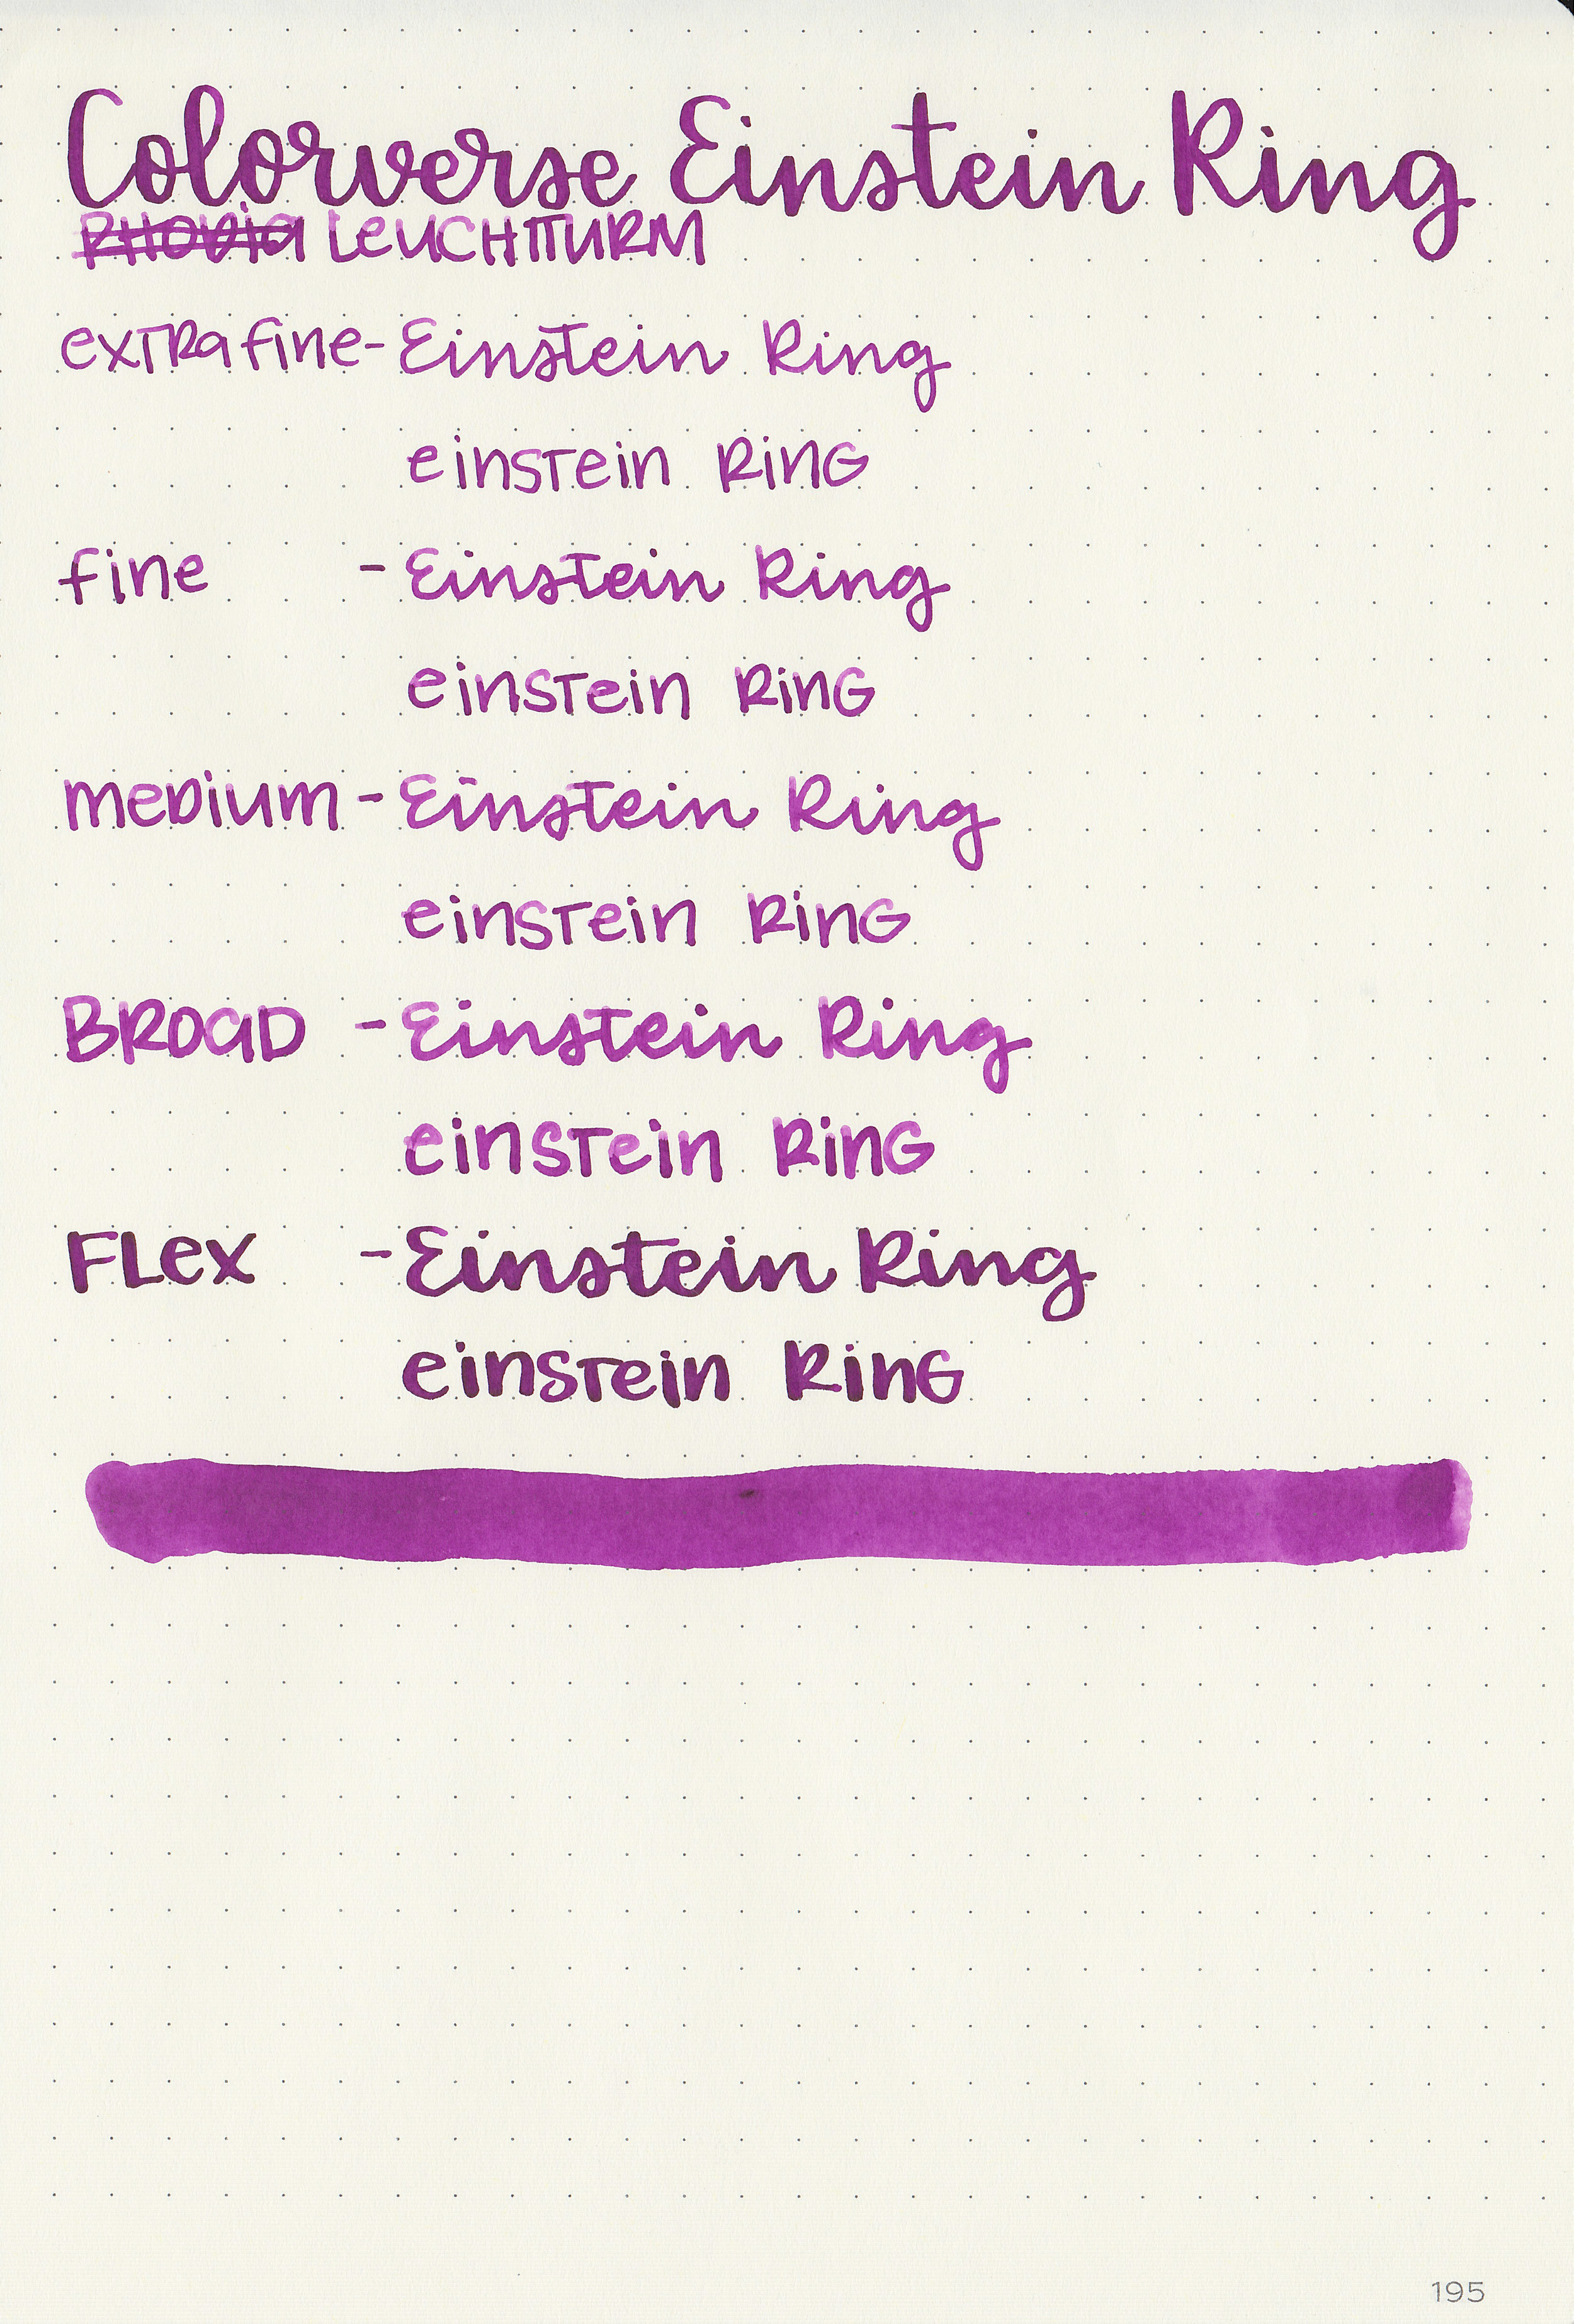 Colorverse Einstein Ring
RHODIA LEUCHTTURM
extra fine - Einstein Ring
einstein Ring
fine - Einstein Ring
einstein Ring
medium - Einstein Ring
einstein Ring
Broad - Einstein Ring
einstein Ring
Flex - Einstein Ring
einstein Ring
195